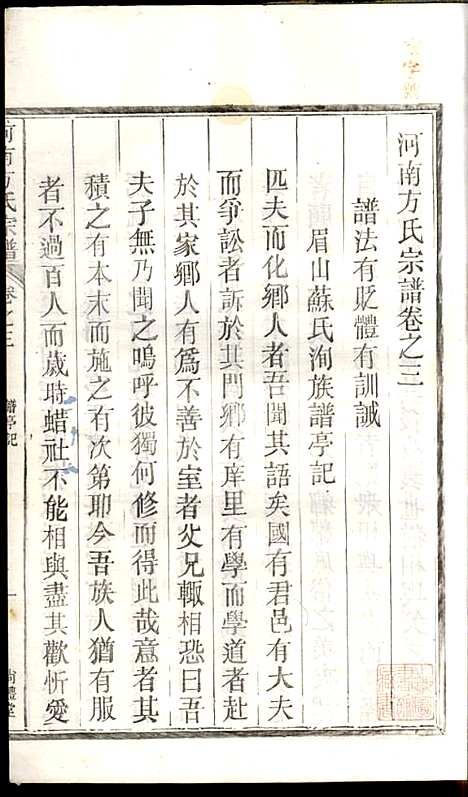 河南方氏宗譜卷之三
譜法有貶體有訓誡
眉山蘇氏洵族譜亭記
匹夫而化鄉人者吾聞其語矣國有君邑有大夫
而爭訟者訴於其門鄉有庠里有學而學道者赴
於其家鄉人有為不善於室者父兄輙相恐曰吾
夫子無乃聞之嗚呼彼獨何修而得此哉意者其
積之有本末而施之有次第耶今吾族人猶有服
者不過百人而歲時蜡社不能相與盡其歡忻愛
河南方氏宗譜 卷之三 譜亭記 一 尚禮堂